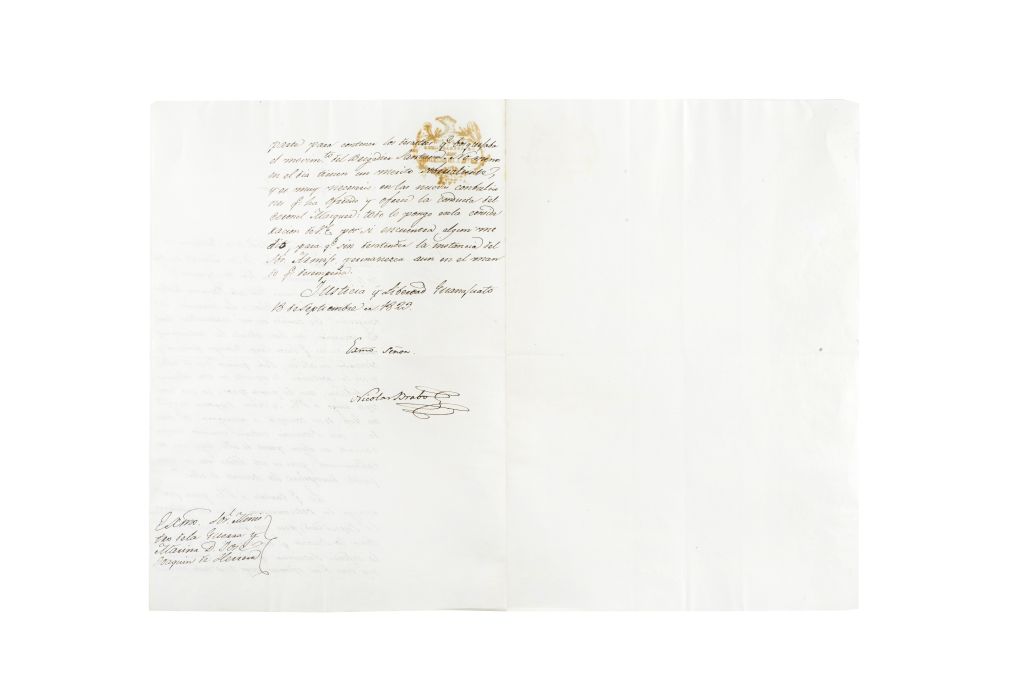 parte para contener los desastres qe. ha
el movimto. del Brigadier Santana, y lo
en el dia tienen un merito sobresaliente,
y es muy necesario en las nuevas
nes qe. ha ofrecido y ofrece la conducta del
Coronel Marquez. Todo lo pongo en la conside
racion de V.E. por si encuentra algun me
dio, para qe. sin desatender la instancia del
Sor. permanezca aun en el man
do qe. desempeña.
Justicia y Libertad Guanajuato
18 de Septiembre de 1823.
Exmo. Señor
Nicolas Brabo
Exmo. Sor. Minis
tro de la Guerra y
Marina D. José
Joaquin de Herrera